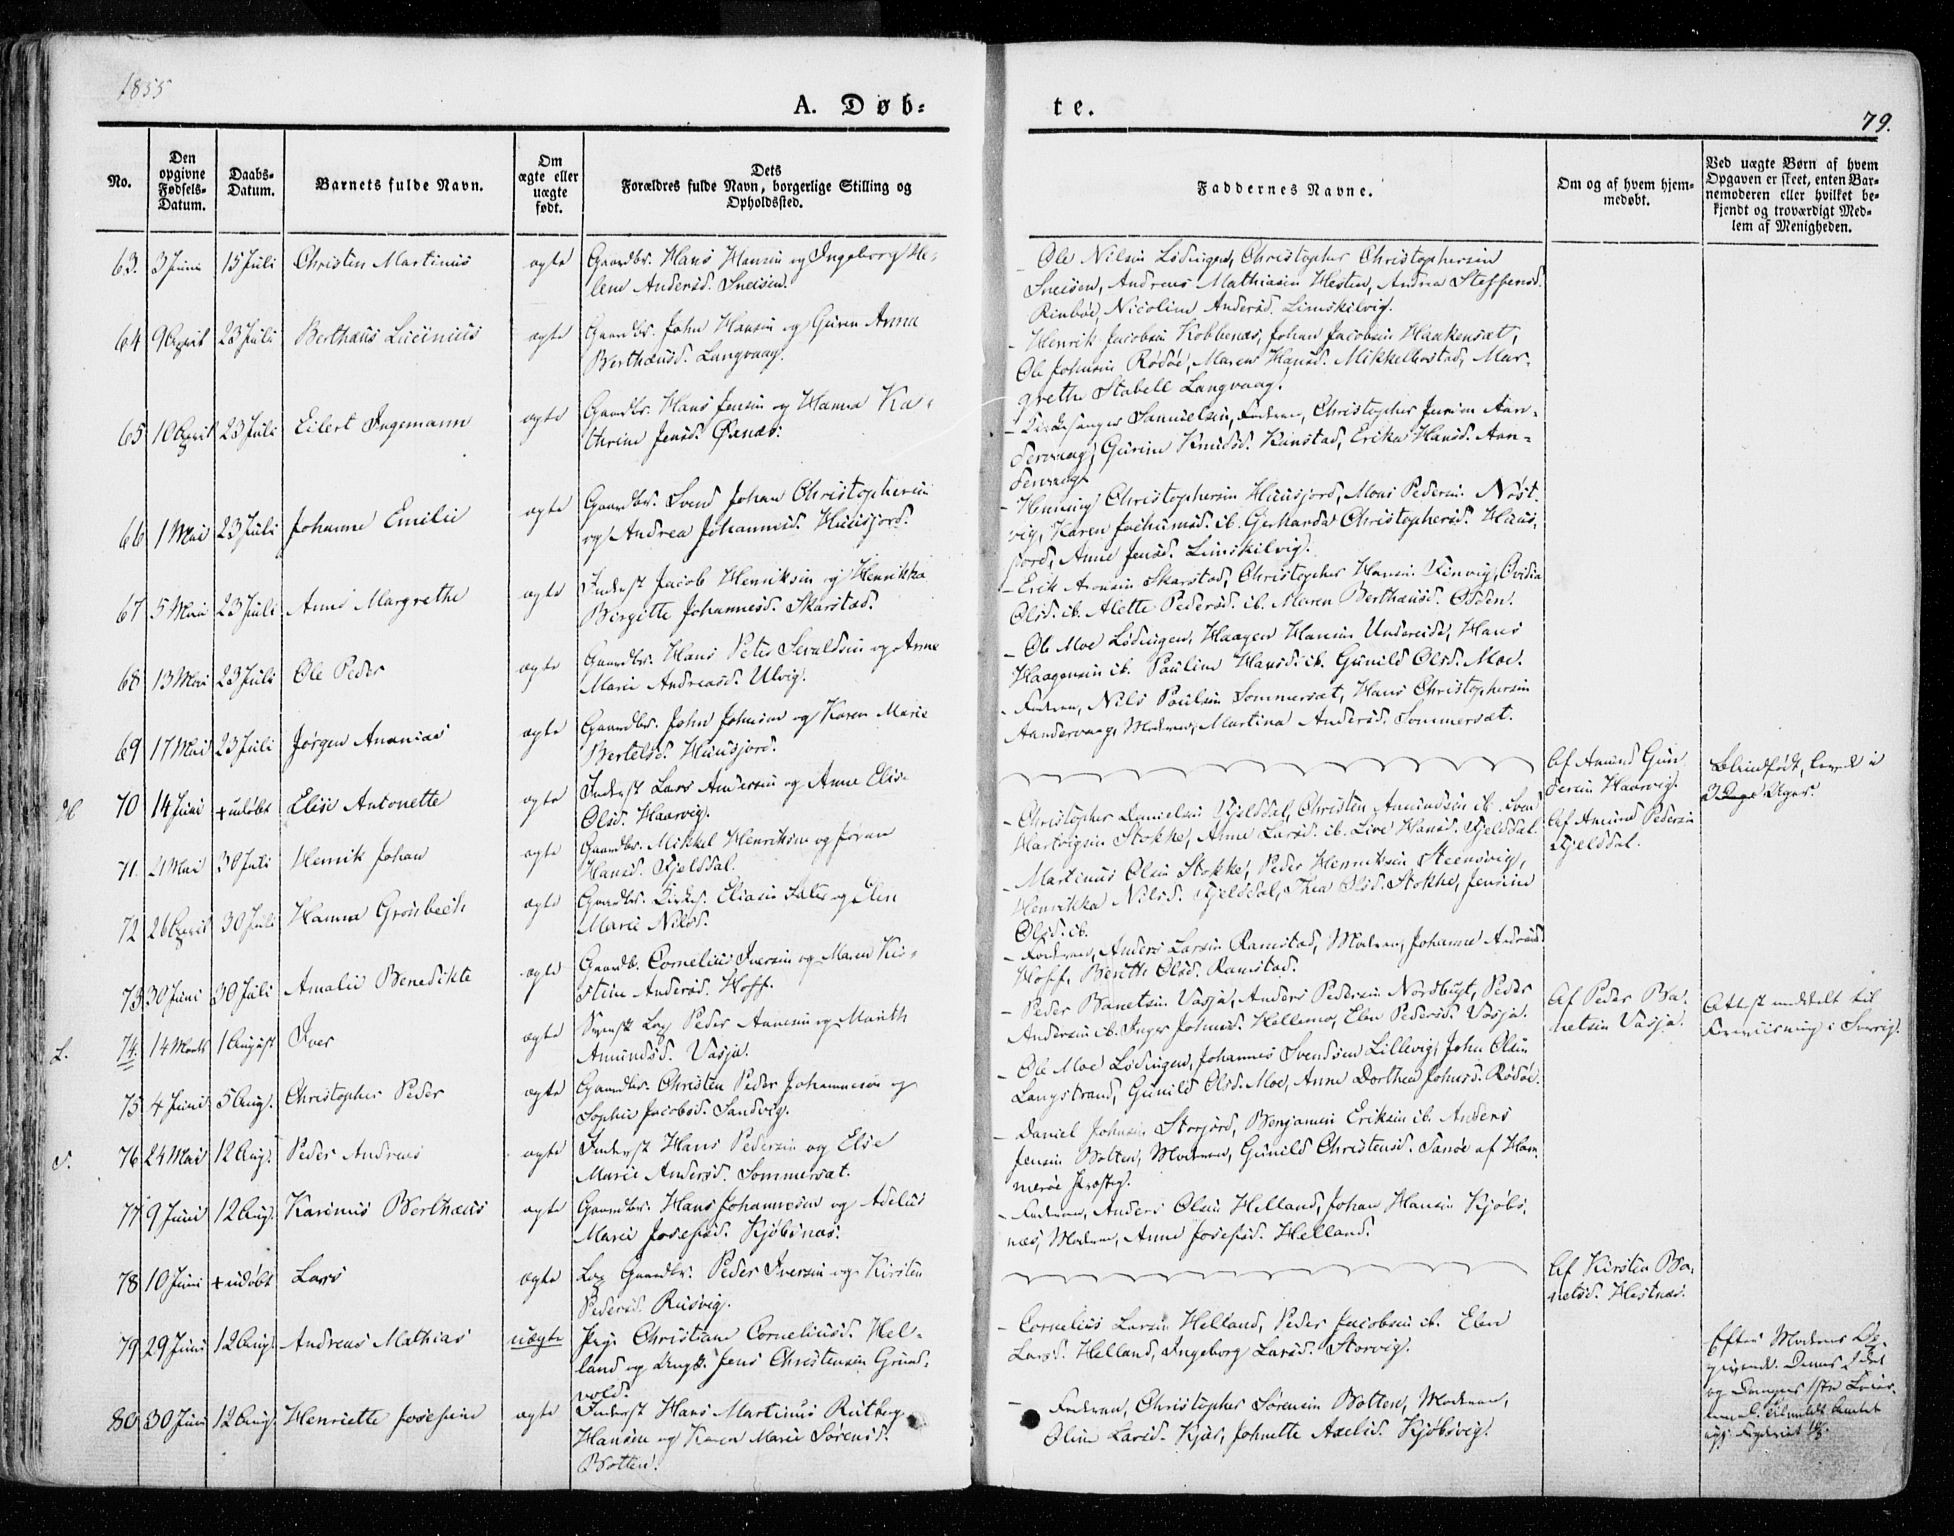 1855
A. Døb-
te.
79.
No.
Den opgivne Fødsels-Datum.
Daabs-Datum.
Barnets fulde Navn.
Om ægte eller uægte født.
Dets Forældres fulde Navn, borgerlige Stilling og Opholdssted.
Faddernes Navne.
Om og af hvem hjem-
medøbt.
Ved uægte Børn af hvem
Opgaven er skeet, enten Bar-
nemoderen eller hvilket be-
kjendt og troværdigt Med-
lem af Menigheden.
63. 3 Juni 15 Juli Christen Martinus ægte Gaardbr. Hans Hansen og Ingeborg He-
lene Andersd. Sneisen.
- Ole Nilsen Lødingen, Christopher Christophersen
Sneisen, Andreas Mathiasen Hesten, Andrea Steffensd.
Rinbøe, Nicoline Andersd. Limskilvig.
64 9 April 23 Juli Berthæus Lucinius ægte Gaardbr. John Hansen og Guren Anna
Berthæusd. Langvaag.
- Henrik Jacobsen Kobbenæs, Johan Jacobsen Haakensæt,
Ole Johnsen Rødøe, Maren Hansd. Mikkelbostad, Mar-
grethe Stabell Langvaag.
65 10 April 23 Juli Eilert Ingemann ægte Gaardbr. Hans Jensen og Hanna Ka-
thrine Jensd. Øxnæs.
- Kirkesanger Samuelsen, Faderen, Christopher Jensen Aan-
dervaag, Gurine Knudsd. Kanstad, Erika Hansd. Aan-
dervaag.
66 1 Mai 23 Juli Johanne Emilie ægte Gaardbr. Svend Johan Christophersen
og Andrea Johannesd. Huusjord.
- Henning Christophersen Huusjord, Mons Pedersen Nøst-
vig, Karen Jochumsd. ib. Gerharda Christophersd. Huus-
jord, Anne Jensd. Limskilvig.
67 5 Mai 23 Juli Anne Margrethe ægte Inderst Jacob Henriksen og Henrikka
Birgitte Johannesd. Skarstad.
- Erik Aronsen Skarstad, Christopher Hansen Finvig, Ovidia
Olsd. ib. Alette Pedersd. ib. Maren Berthæusd. Odden.
68 13 Mai 23 Juli Ole Peder ægte Gaardbr. Hans Peter Sevaldsen og Anne
Marie Andreasd. Ulvig.
- Ole Moe Lødingen, Haagen Hansen Undereide, Hans
Haagensen ib. Pauline Hansd. ib. Gunild Olsd. Moe.
69 17 Mai 23 Juli Jørgen Ananias ægte Gaardbr. John Johnsen og Karen Marie
Bertelsd. Huusjord.
- Faderen, Nils Paulsen Sommersæt, Hans Christophersen
Aandervaag, Moderen, Martina Andersd. Sommersæt.
H 70 14 Juni + udøbt Elise Antonette ægte Inderst Lars Andersen og Anne Elis.
Olsd. Haarvig.
Af Amund Gun-
dersen Haarvig.
Blindfødt, levede i
2 Uger.
71. 21 Mai 30 Juli Henrik Johan ægte Gaardbr. Mikkel Henriksen og Joran
Hansd. Fjelddal.
- Christopher Danielsen Fjelddal, Christen Amundsen ib. Svend
Hartvigsen Stokke, Anne Larsd. ib. Live Hansd. Fjelddal.
Af Amund Pedersen
Fjelddal.
72 26 April 30 Juli Hanna Grønbech ægte Gaardbr. Kirkes. Eliasen Sæter og Elen
Marie Nilsd.
- Martinus Olsen Stokke, Peder Henriksen Steensvig,
Henrikka Nilsd. Fjelddal, Thea Olsd. Stokke, Jensine
Olsd. ib.
73 30 Juni 30 Juli Amalie Benedikte ægte Gaardb. Cornelius Iversen og Maren Kir-
stine Andersd. Hoff.
- Faderen, Anders Larsen Ramstad, Moderen, Johanne Andersd.
Hoff, Berith Olsd. Ramstad.
L. 74. 14 Marts 1 August Iver ægte Svensk Lap Peder Amnesen og Marith
Amundsd. Vasja.
- Peder Banetsen Vasja, Anders Pedersen Nordbugt, Peder
Andersen ib. Inger Johnsd. Hellemo, Elen Pedersd. Vasja.
Af Peder Ba-
netsen Vasja.
Attest meddelt til
Foreviisning i Sverig.
75 4 Juni 5 Aug. Christopher Peder ægte Gaardbr. Christen Peder Johannesen og
Sophie Jacobsd. Sandvig.
- Ole Moe Lødingen, Johannes Svendsen Lillevig, John Olsen
Langstrand, Gunild Olsd. Moe, Anne Dorthea Johnsd. Rødøe.
S. 76 24 Mai 12 Aug. Peder Andreas ægte Inderst Hans Pedersen og Else
Marie Andersd. Sommersæt.
- Daniel Johnsen Storjord, Benjamin Eriksen ib. Anders
Jensen Botten, Moderen, Gunild Christensd. Tanøe af Ham-
merøe Præstg.
77 9 Juni 12 Aug. Karinus Berthæus ægte Gaardbr. Hans Johannesen og Adelus
Marie Josephsd. Kjøbsnæs.
- Faderen, Anders Olsen Helland, Johan Hansen Kjøbs-
næs, Moderen, Anne Josephsd. Helland.
78 10 Juni + udøbt Lars ægte Lap Gaardbr. Peder Iversen og Kirsten
Pedersd. Rusvig.
Af Kirsten Ba-
netsd. Hestnæs.
79 29 Juni 12 Aug. Andreas Mathias uægte Pige Christiane Corneliusd. Hel-
land og Ungk. Jens Christensen Grund-
vold.
- Cornelius Larsen Helland, Peder Jacobsen ib. Elen
Larsd. Helland, Ingeborg Larsd. Storvig.
Efter Moderens Op-
givende. Dennes 2det
og Drengens 1ste Leier-
80 30 Juni 12 Aug. Henriette Josephine ægte Inderst Hans Martinus Rutberg
Hansen og Karen Marie Sørensd.
Botten.
- Faderen, Christopher Sørensen Botten, Moderen,
Oline Larsd. Kjær, Johnette Axelsd. Kjøbsvig.